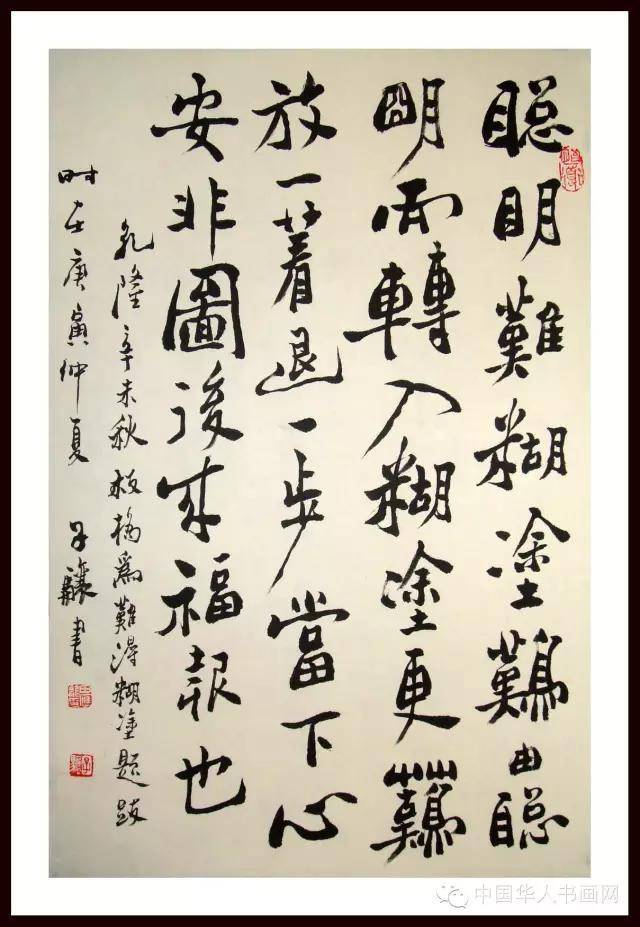 聪明難糊塗鷄由聪
明而轉入糊塗更鷄
放一著退一步當下心
安非圖後来福報也
乾隆辛未秋板橋為難得糊塗題跋
时在庚寅仲夏 子驤書
中国华人书画网